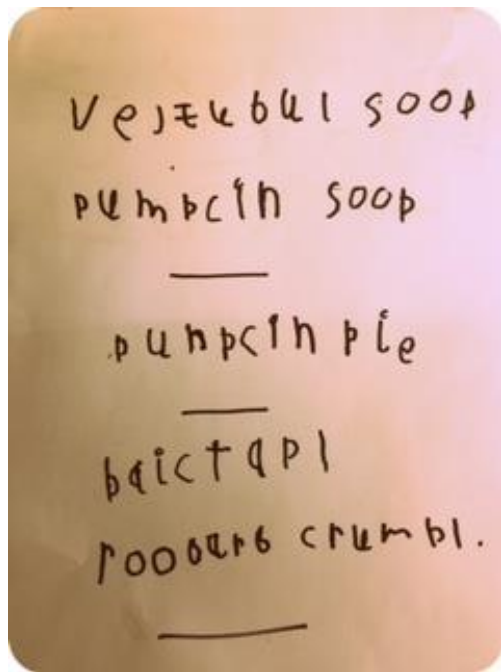 vejtubul soop
pumpcin soop
punpcin pie
baict apl
roobarb crumbl.